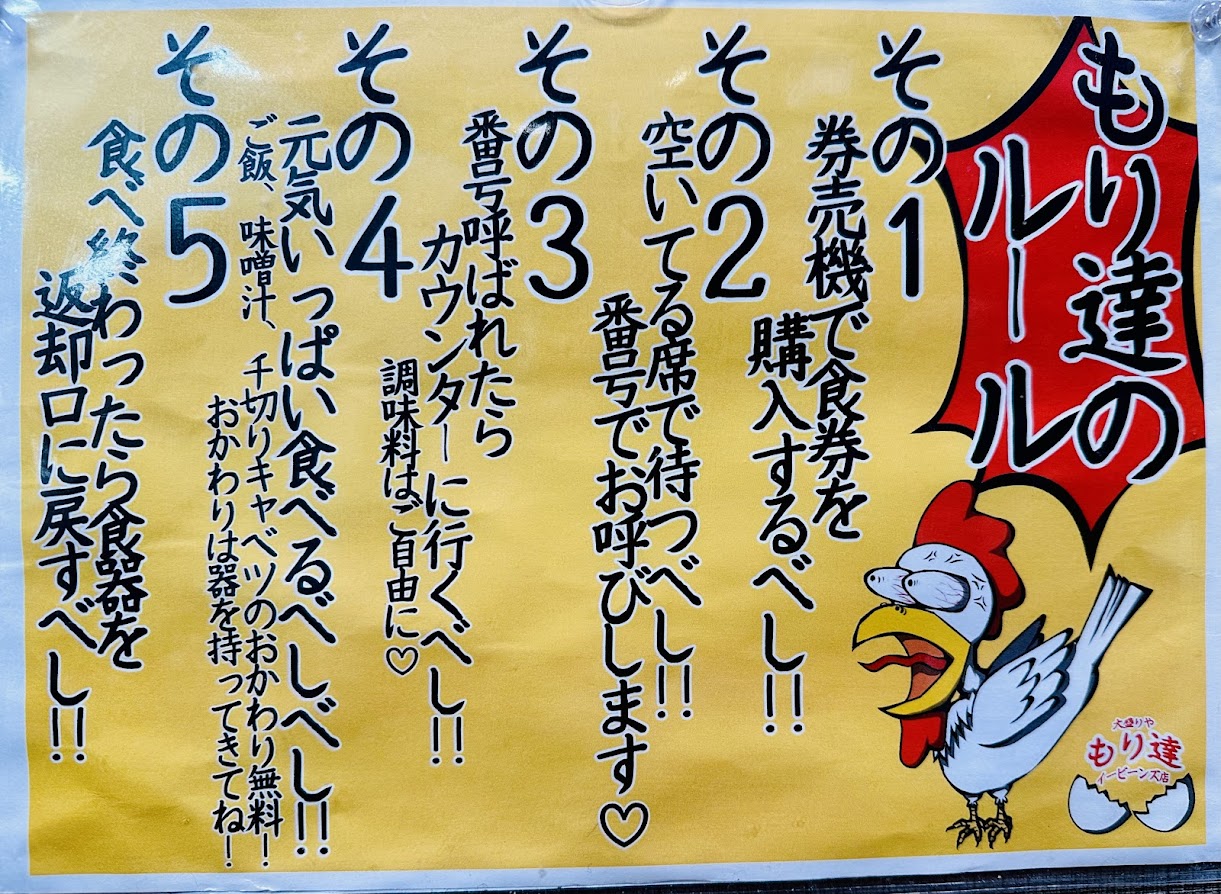 もり達の
ルール
その1
券売機で食券を
購入するべし!!
その2
空いてる席で待つべし!!
番号でお呼びします♡
その3
番号呼ばれたら
カウンターに行くべし!!
調味料はご自由に♡
その4
元気いっぱい食べるべしべし!!
ご飯、味噌汁、千切りキャベツのおかわり無料!
おかわりは器を持ってきてね!
その5
食べ終わったら食器を
返却口に戻すべし!!
大盛りや
もり達
イービーンズ店